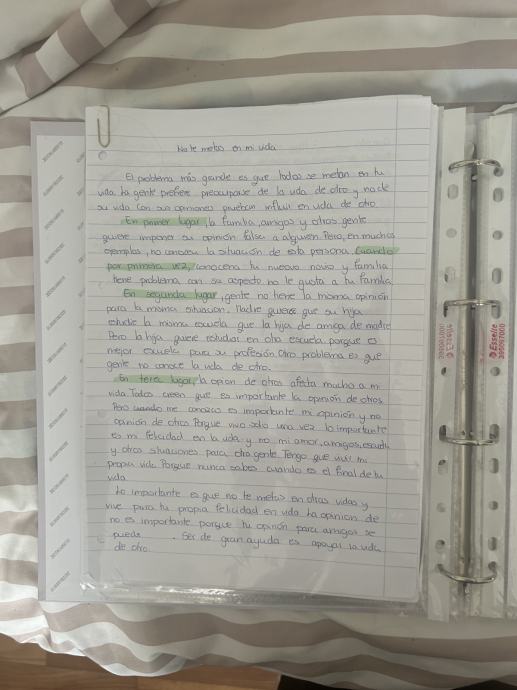 No te metas en mi vida
El problema más grande es que todos se metan en tu
vida. La gente prefiere preocuparse de la vida de otro y no de
su vida. Con sus opiniones prueban influir en vida de otro.
En primer lugar, la familia, amigos y otros gente
quiere imponer su opinión falsa a alguien. Pero, en muchos
ejemplos, no conocen la situación de esta persona. Cuando
por primera vez, conocena tu nuevo novio y familia
tiene problema con su aspecto no le gusta a tu familia.
En segundo lugar, gente no tiene la misma opinión
para la misma situación. Madre quiere que su hija
estudie la misma escuela que la hija de amiga de madre.
Pero la hija quiere estudiar en otra escuela, porque es
mejor escuela para su profesión. Otro problema es que
gente no conoce la vida de otro.
En terer lugar, la opion de otros afecta mucho a mi
vida. Todos creen que es importante la opinión de otros.
Pero cuando me conozco es importante mi opinión y no
opinión de otro. Porque vivo solo una vez. lo importante
es mi felicidad en la vida y no mi amor, amigos, escuela
y otros situaciones para otra gente. Tengo que vivir mi
propia vida. Porque nunca sabes cuando es el final de tu
vida.
Lo importante es que no te metas en otras vidas y
vive para tu propia felicidad en vida. La opinion de
no es importante porque tu opinión para amigos se
puede . Ser de gran ayuda es apoyar la vida
de otro.
Esselte